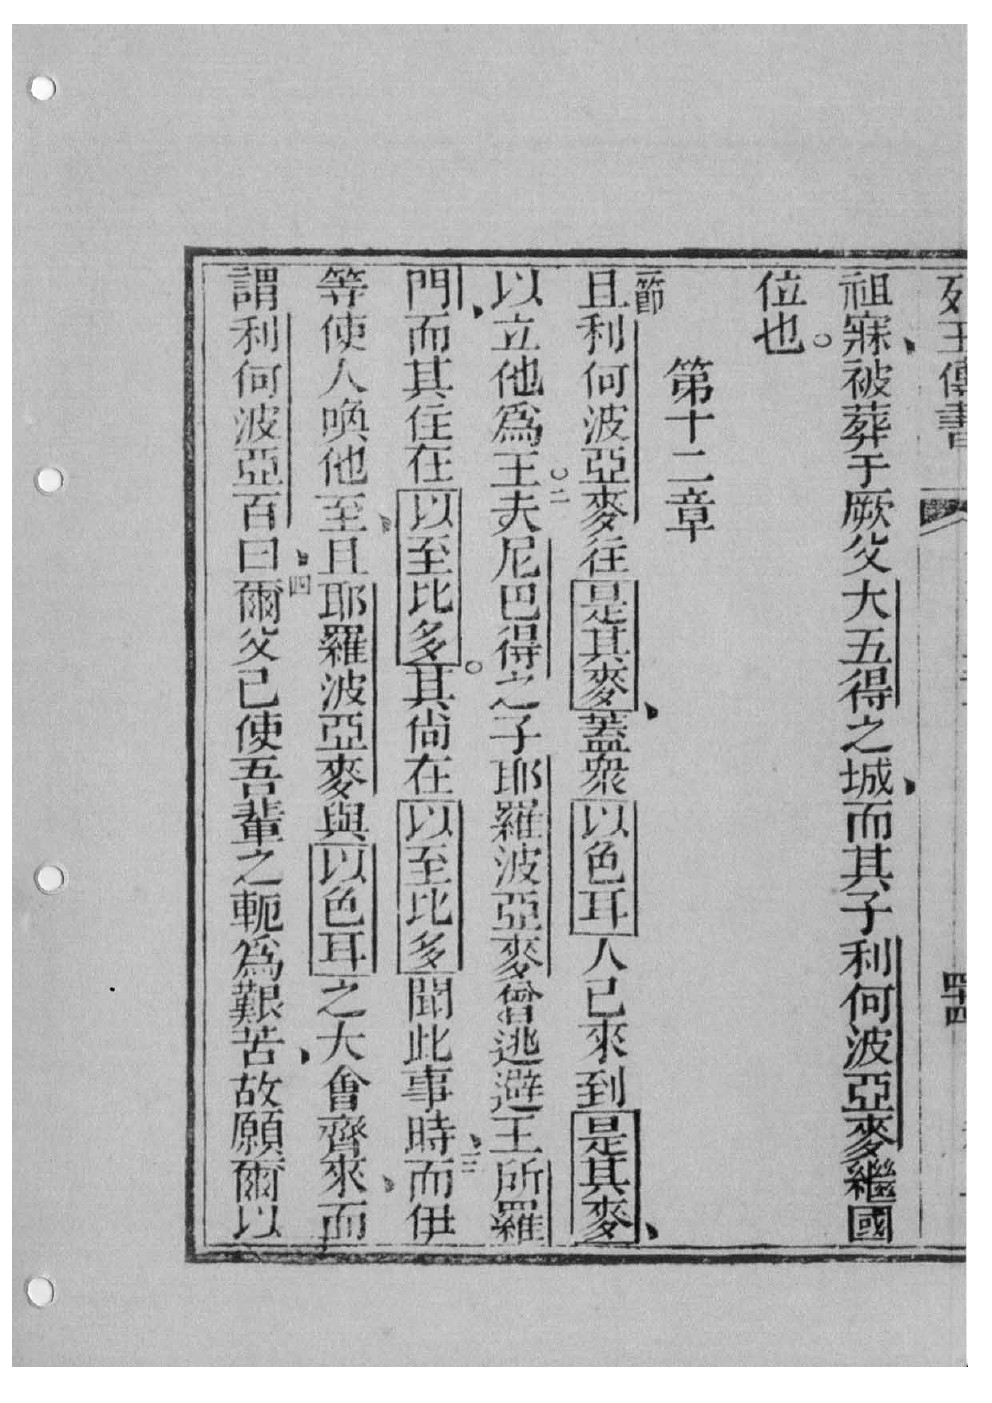 列王傳書
四十四
祖寐、被葬于厥父大五得之城、而其子利何波亞麥繼國
位也。
第十二章
一節且利何波亞麥往是其麥、蓋衆以色耳人已來到是其麥、
以立他爲王。二夫尼巴得之子耶羅波亞麥曾逃避王所羅
門、而其住在以至比多。其尚在以至比多聞此事時、三而伊
等使人喚他至、且耶羅波亞麥與以色耳之大會齊來、而
謂利何波亞百曰、四爾父已使吾輩之軛爲艱苦、故願爾以